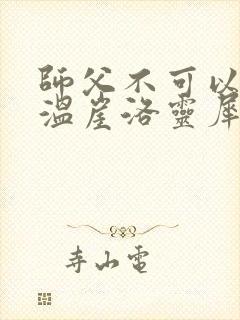 師父不可以
溫崖洛靈犀
寺山電